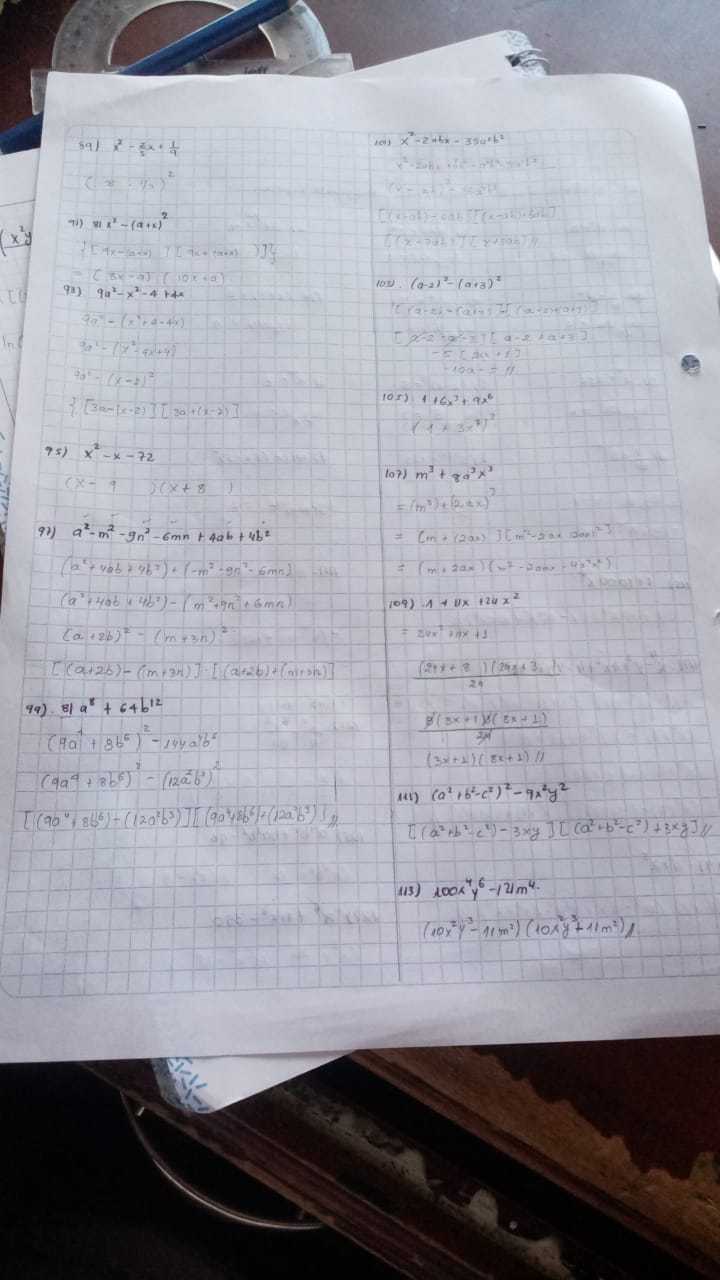 89) x² - 2/3x + 1/9
91) 81x² - (a+x)²
{[9x-(a+x)] [9x+(a+x)]}
= (8x-a) (10x+a)
93) 9a²-x²-4+4x
9a²-(x²+4-4x)
9a²-(x²-4x+4)
9a²-(x-2)²
{[3a-(x-2)][3a+(x-2)]
95) x²-x-72
(x- 9 )(x+ 8 )
97) a²-m²-9n²-6mn+4ab+4b²
(a²+4ab+4b²)+(-m²-9n²-6mn)
(a²+4ab+4b²)-(m²+9n²+6mn)
(a+2b)² - (m+3n)²
[(a+2b)-(m+3n)]·[(a+2b)+(m+3n)]
99). 81a⁸ + 64b¹²
(9a⁴ + 8b⁶)² - 144a⁴b⁶
(9a⁴ + 8b⁶)² - (12a²b³)²
[(9a⁴+8b⁶)-(12a²b³)][(9a⁴+8b⁶)+(12a²b³)]//
101) x²-2abx-35a²b²
[(x-ab)-6ab][(x-ab)+6ab]
[(x-7ab)][x+5ab]//
103). (a-2)²-(a+3)²
-5 [2a+1]
-10a-5//
105) 1+6x³+9x⁶
(1+3x³)²
107) m³+8a³x³
= (m³)+(2ax)³
= (m+2ax)
109). 1+11x+24x²
= 24x²+11x+1
(24x+8)(24x+3
24
8(3x+1)3(8x+1)
24
(3x+1)(8x+1)//
111) (a²+b²-c²)²-9x²y²
[(a²+b²-c²)-3xy][(a²+b²-c²)+3xy]//
113) 100x⁴y⁶-121m⁴.
(10x²y³-11m²)(10x²y³+11m²)//